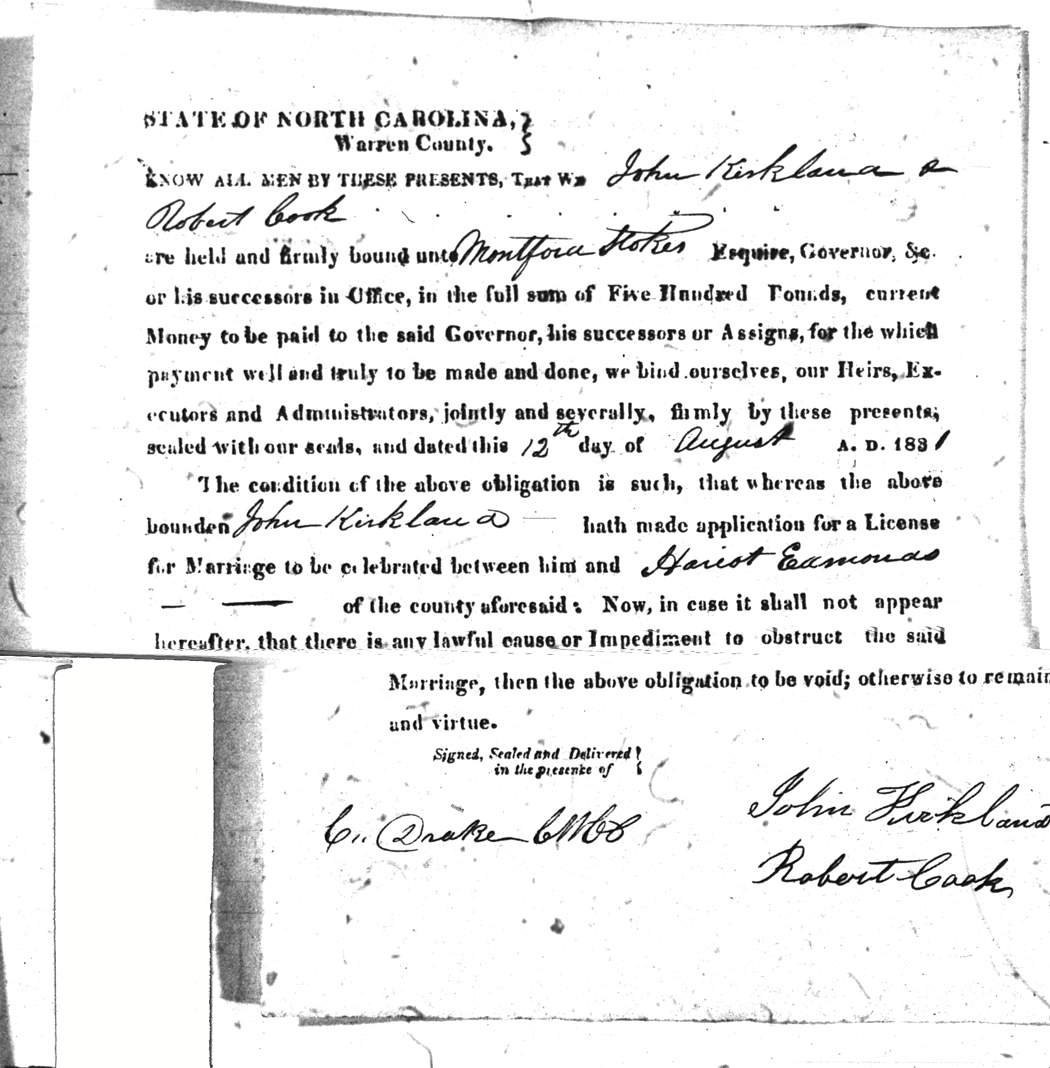 STATE OF NORTH CAROLINA,
Warren County.
KNOW ALL MEN BY THESE PRESENTS, THAT WE John Kirkland &
Robert Cook
are held and firmly bound unto Montford Stokes Esquire, Governor, &c.
or his successors in Office, in the full sum of Five Hundred Pounds, current
Money to be paid to the said Governor, his successors or Assigns, for the which
payment well and truly to be made and done, we bind ourselves, our Heirs, Ex-
ecutors and Administrators, jointly and severally, firmly by these presents,
sealed with our seals, and dated this 12th day of August A. D. 1831
The condition of the above obligation is such, that whereas the above
bounden John Kirkland — hath made application for a License
for Marriage to be celebrated between him and Hariot Edmonds
— — of the county aforesaid: Now, in case it shall not appear
hereafter, that there is any lawful cause or Impediment to obstruct the said
Marriage, then the above obligation to be void; otherwise to remain
and virtue.
Signed, Sealed and Delivered
in the presence of
John Kirkland
C. Drake CWCC
Robert Cook